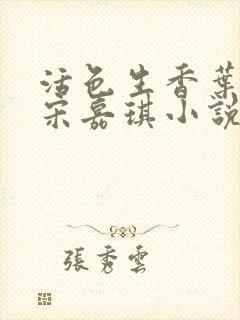 活色生香葉
宋嘉琪小說
張秀雲